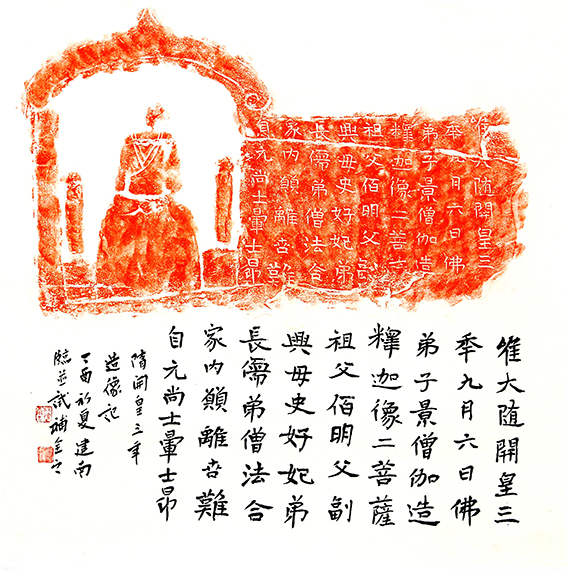 唯大隨開皇三
季九月六日佛
弟子景僧伽造
釋迦像二菩
祖父佰明父
興母史好妃弟
長儒弟僧法合
家內願離苦難
自元尚士暈士昂
唯大隨開皇三
季九月六日佛
弟子景僧伽造
釋迦像二菩薩
祖父佰明父副
興母史好妃弟
長儒弟僧法合
家內願離苦難
自元尚士暈士昂
隋開皇三年
造像記
丁酉初夏建南
臨並試補全之